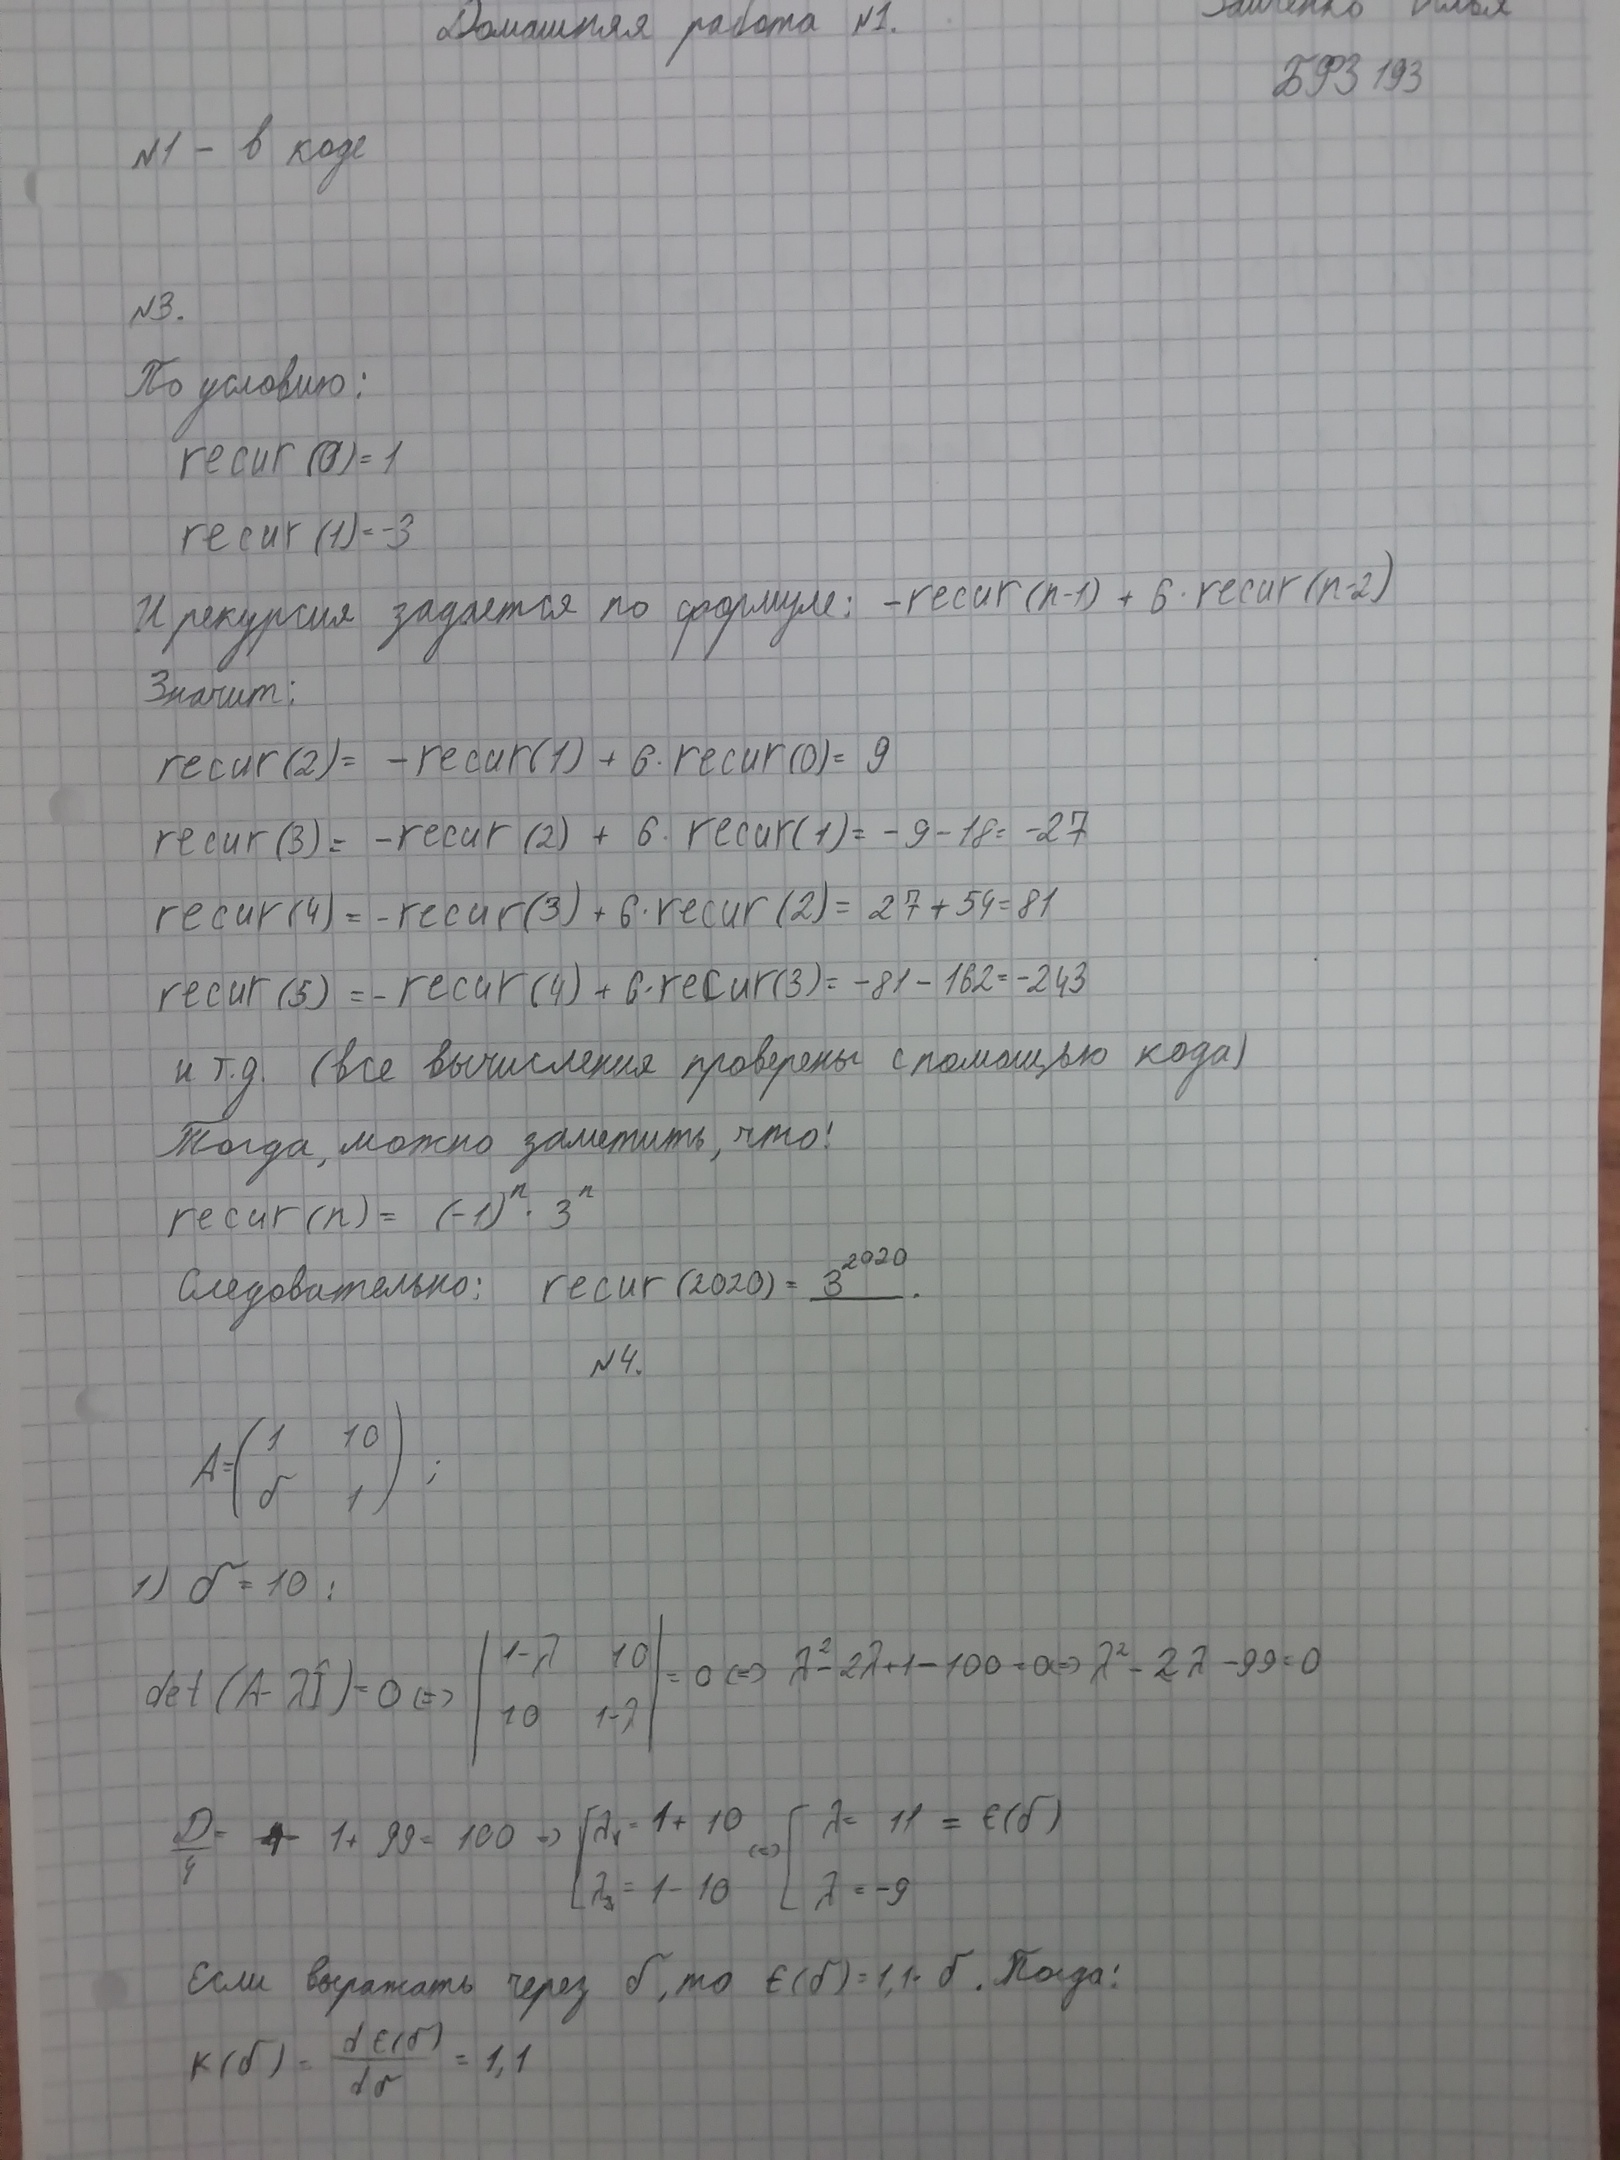 Домашняя работа №1.
БФЗ 193
№1 - в коде
№3.
По условию:
recur (0) = 1
recur (1) = -3
И рекурсия задается по формуле: -recur (n-1) + 6·recur (n-2)
Значит:
recur (2) = -recur (1) + 6·recur (0) = 9
recur (3) = -recur (2) + 6·recur (1) = -9-18 = -27
recur (4) = -recur (3) + 6·recur (2) = 27+54 = 81
recur (5) = -recur (4) + 6·recur (3) = -81-162 = -243
и т.д. (все вычисления проверены с помощью кода)
Тогда, можно заметить, что:
recur (n) = (-1)^n · 3^n
Следовательно: recur (2020) = 3^2020.
№4.
A = (1 10
δ 1) ;
1) δ = 10 :
det (A - λÎ) = 0 <=> |1-λ 10
10 1-λ| = 0 <=> λ² - 2λ + 1 - 100 = 0 <=> λ² - 2λ - 99 = 0
D/4 = 1 + 99 = 100 => [λ₁ = 1 + 10 <=> [λ = 11 = ε(δ)
λ₂ = 1 - 10 λ = -9
Если выражать через δ, то ε(δ) = 1,1· δ. Тогда:
K(δ) = dε(δ)/dδ = 1,1